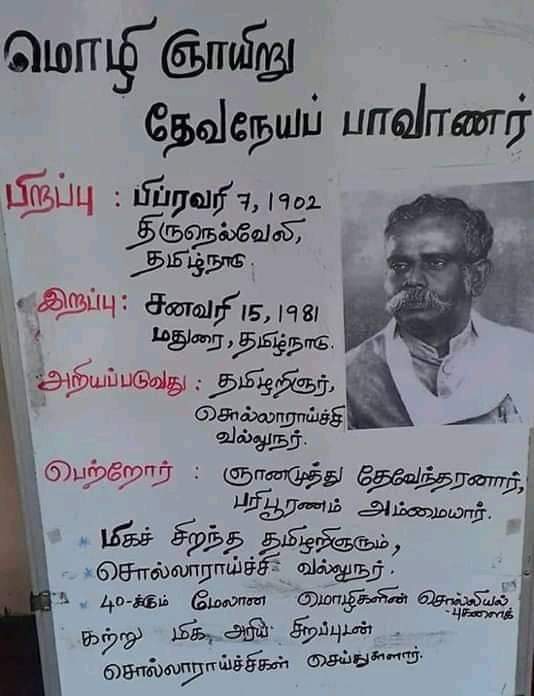 மொழி ஞாயிறு
தேவநேயப் பாவாணர்
பிறப்பு : பிப்ரவரி 7, 1902
திருநெல்வேலி,
தமிழ்நாடு.
இறப்பு : சனவரி 15, 1981
மதுரை, தமிழ்நாடு.
அறியப்படுவது : தமிழறிஞர்,
சொல்லாராய்ச்சி
வல்லுநர்.
பெற்றோர் : ஞானமுத்து தேவேந்தரனார்,
பரிபூரணம் அம்மையார்.
* மிகச் சிறந்த தமிழறிஞரும்,
* சொல்லாராய்ச்சி வல்லுநர்.
* 40-க்கும் மேலான மொழிகளின் சொல்லியல்
-புகளைக்
கற்று மிக அரிய சிறப்புடன்
சொல்லாராய்ச்சிகள் செய்துள்ளார்.